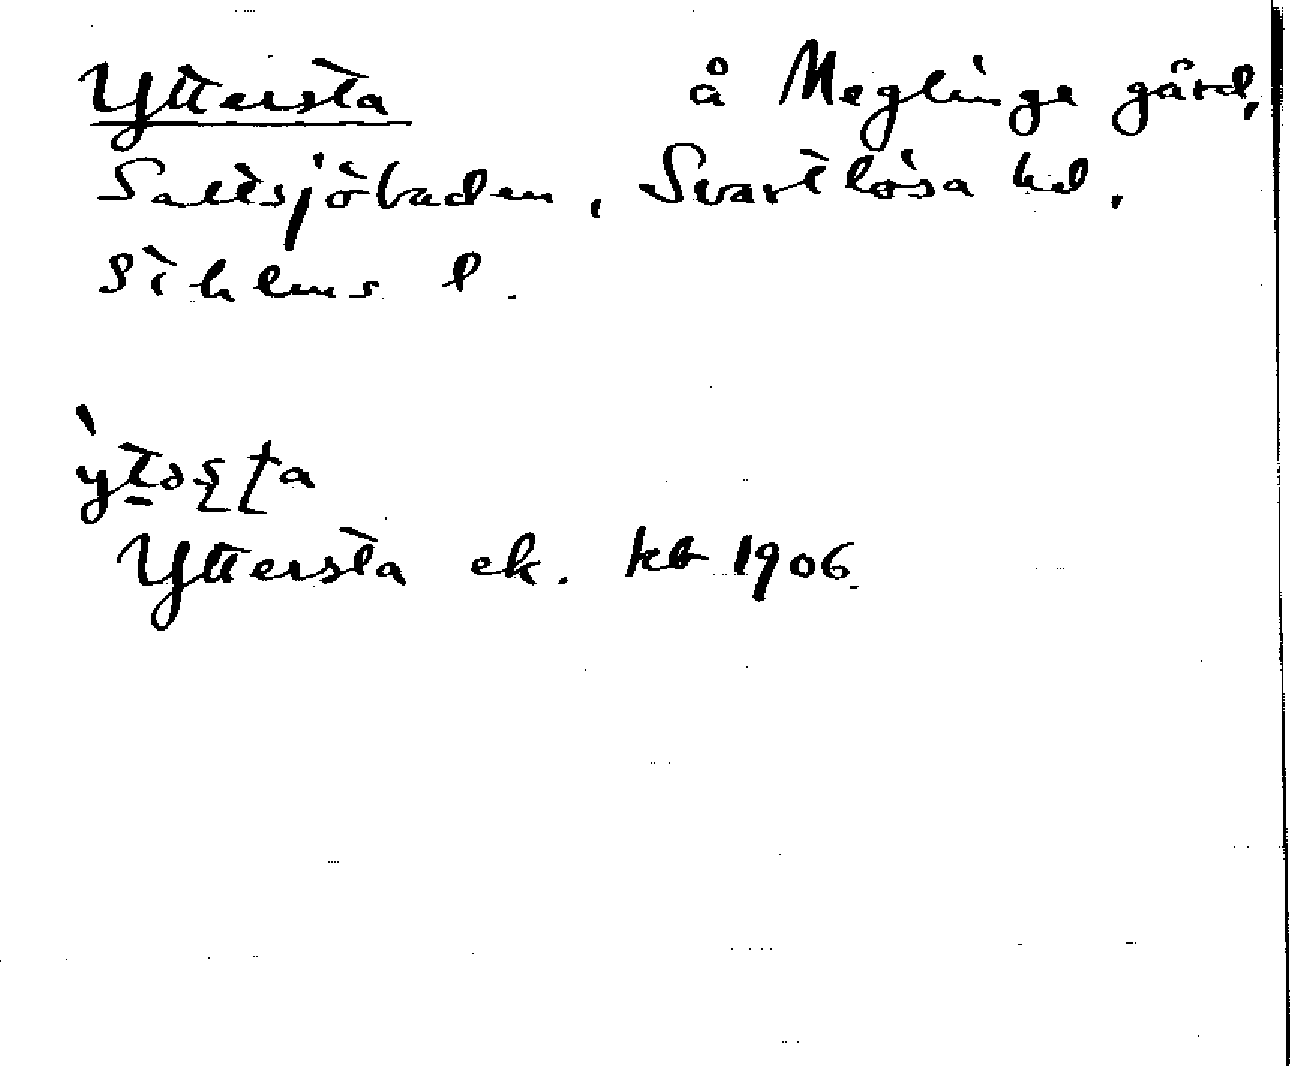 Yttersta å Meglinge gård,
Saltsjöbaden, Svartlösa hd,
Sthlms l.
Yttersta ek. kb 1906